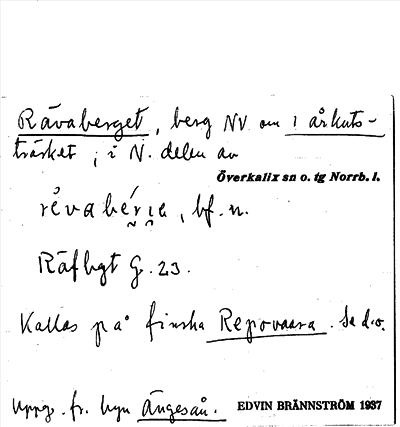 Rävaberget, berg NV om
träsket, i N. delen av
Överkalix sn o. tg Norrb. l.
bf. n.
Räfbgt G. 23.
Kallas på finska Repovaara. Se d.o.
Uppg. fr. byn Ängeså.
EDVIN BRÄNNSTRÖM 1937